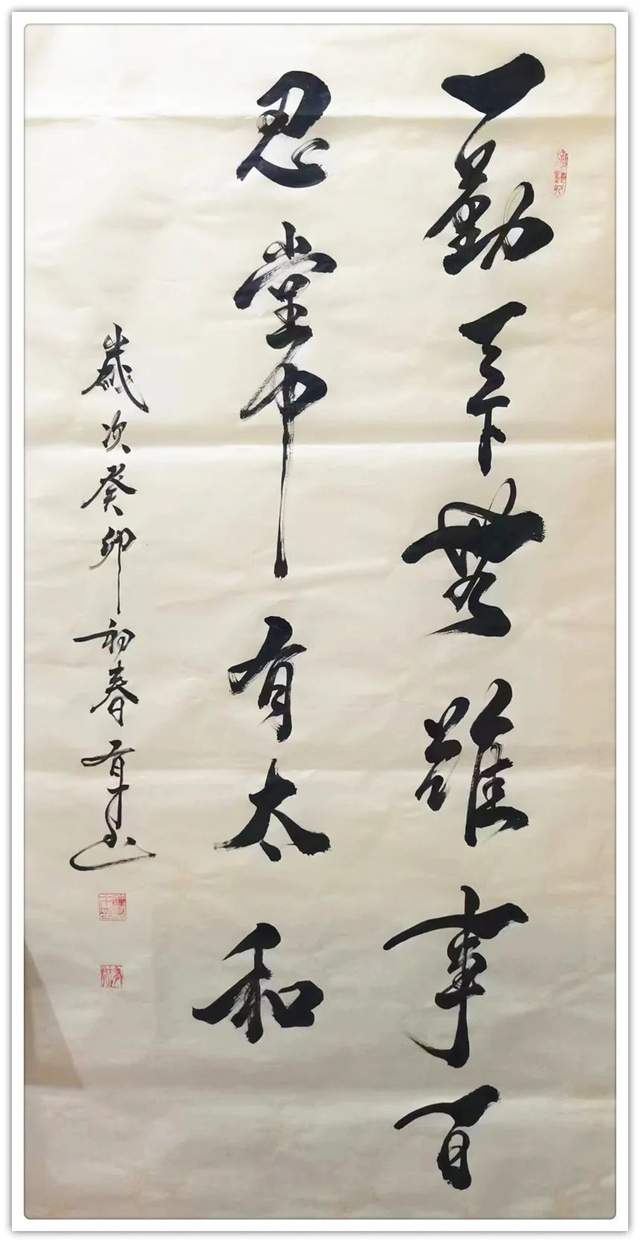 一勤天下無難事百
忍堂中有太和
歲次癸卯初春